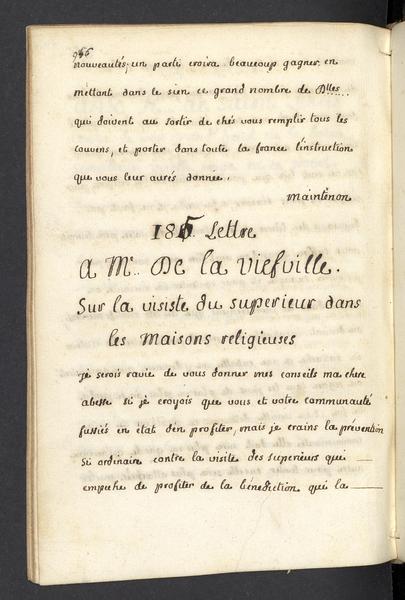 nouveautés; un parti croira beaucoup gagner en
mettant dans le sien ce grand nombre de Dlles
qui doivent au sortir de chés vous remplir tous les
couvens, et porter dans toute la france l'instruction
que vous leur aurés donnée.
maintenon
186 Lettre
A Me. De la Viefville.
Sur la visiste du superieur dans
les Maisons religieuses
je serois ravie de vous donner mes conseils ma chere
abesse si je croyois que vous et votre communauté
fussiés en état d'en profiter, mais je crains la prévention
si ordinaire contre la visite des superieurs qui
empeche de profiter de la bénédiction qui la